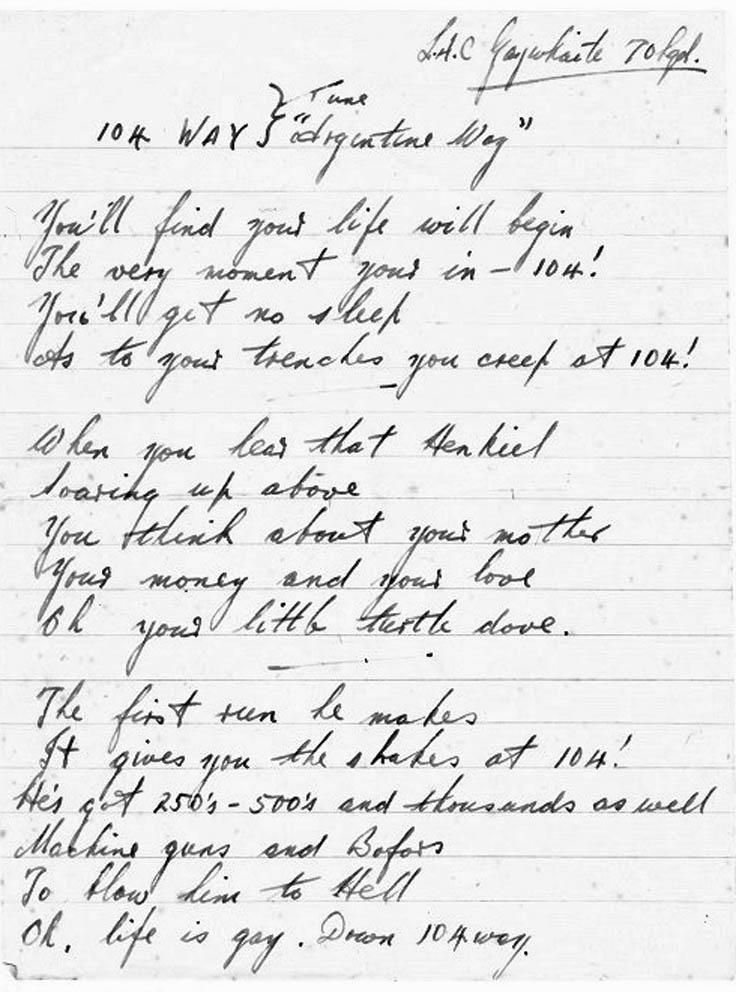 L.A.C Gaywhaite
104 WAY } Tune
"Argentine Way"
You'll find your life will begin
The very moment your in – 104!
You'll get no sleep
As to your trenches you creep at 104!
When you hear that Henkiel
Soaring up above
You think about your mother
Your money and your love
Oh your little turtle dove.
The first run he makes
It gives you the shakes at 104!
He's got 250's – 500's and thousands as well
Machine guns and Bofors
To blow him to Hell
Oh, life is gay. Down 104 way.